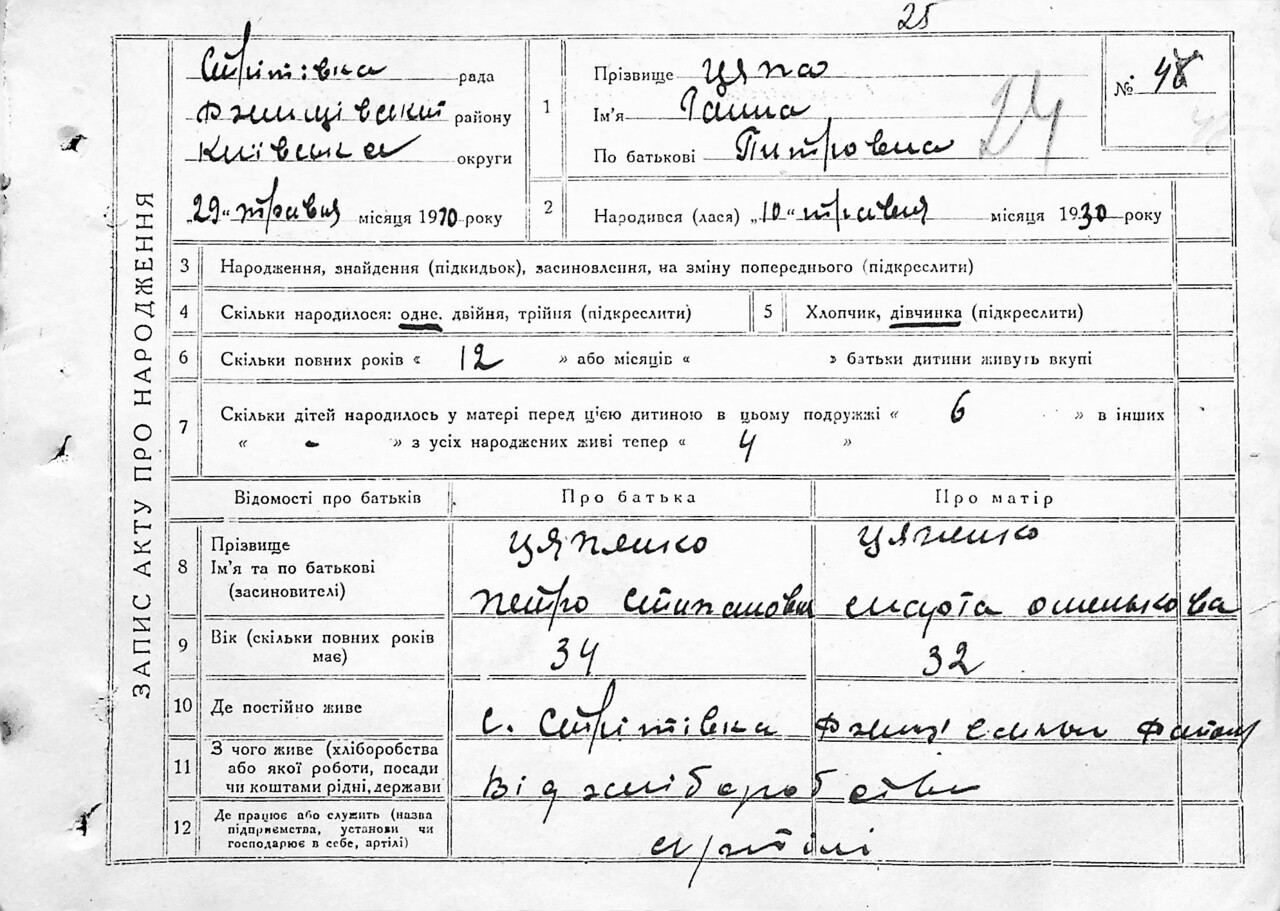 25
Стрітівка рада
Ржищівский району
Київська округи
„29“ травня місяця 1930 року
1
Прізвище Цяпа
Ім'я Ганна
По батькові Питровна
24
№ 48
2
Народився (лася) „10“ травня місяця 1930 року
ЗАПИС АКТУ ПРО НАРОДЖЕННЯ
3 Народження, знайдення (підкидьок), засиновлення, на зміну попереднього (підкреслити)
4 Скільки народилося: одне, двійня, трійня (підкреслити)
5 Хлопчик, дівчинка (підкреслити)
6 Скільки повних років « 12 » або місяців « » батьки дитини живуть вкупі
7 Скільки дітей народилось у матері перед ц'єю дитиною в цьому подружжі « 6 » в інших
« - » з усіх народжених живі тепер « 4 »
Відомості про батьків Про батька Про матір
8
Прізвище
Ім'я та по батькові
(засиновителі)
Цяпенко
Петро Степанович
Цяпенко
Марта
9
Вік (скільки повних років
має)
34 32
10 Де постійно живе с. Стрітівка
11
З чого живе (хліборобства
або якої роботи, посади
чи коштами рідні, держави
Від хліборобства
12
Де працює або служить (назва
підприємства, установи чи
господарює в себе, артілі)
артілі